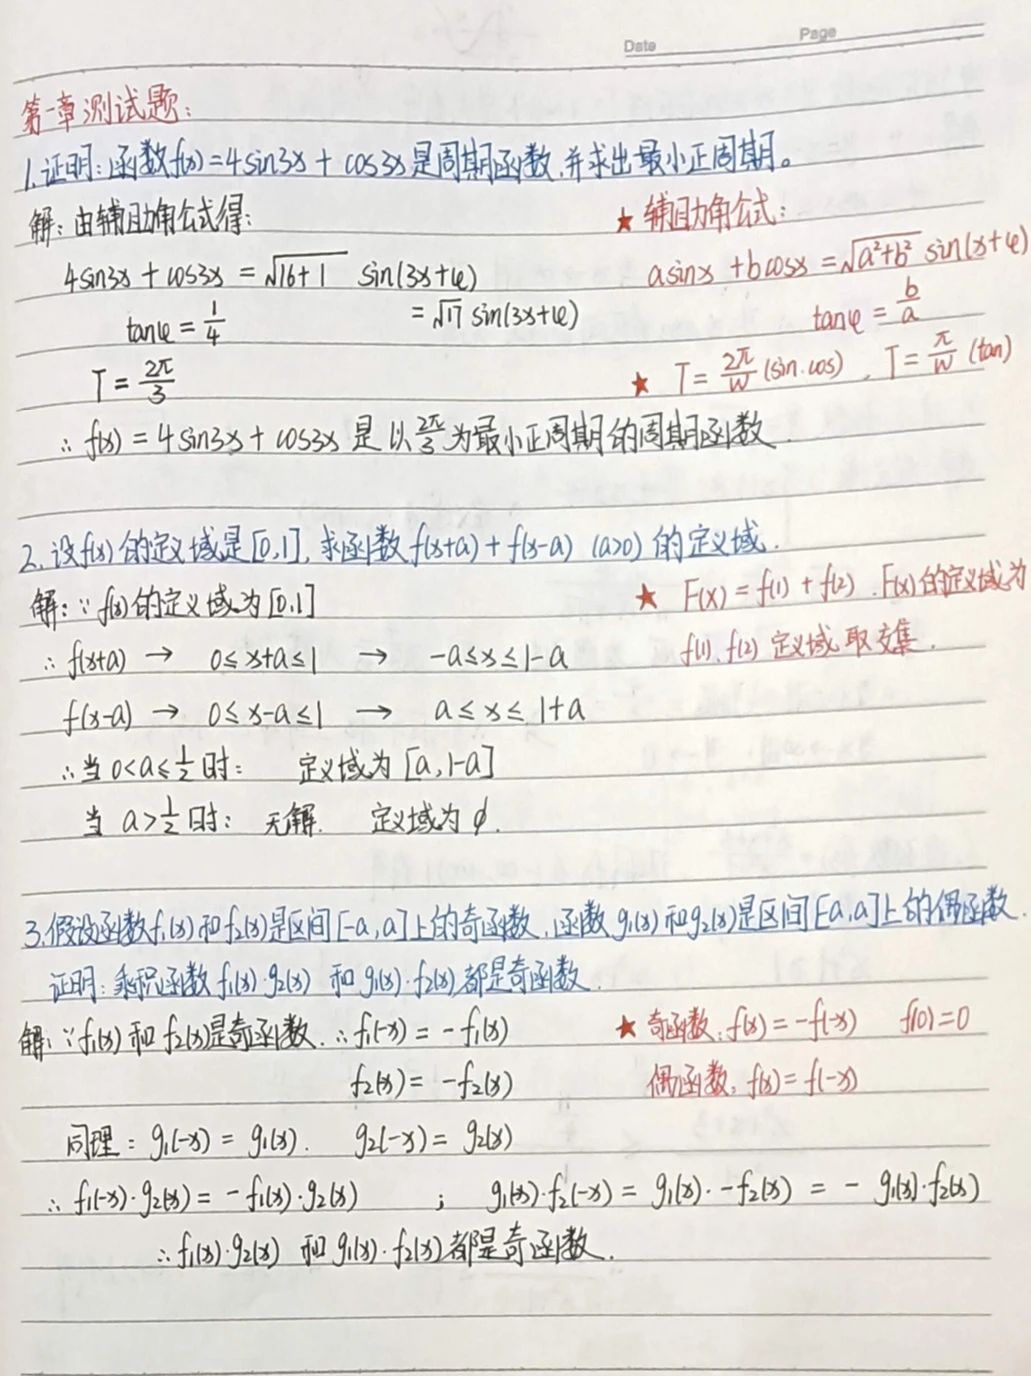 Date Page
第一章测试题:
1.证明:函数f(x)=4sin3x + cos3x是周期函数,并求出最小正周期。
解:由辅助角公式得: ★ 辅助角公式:
4sin3x + cos3x = √(16+1) sin(3x+φ) asinx + bcosx = √(a²+b²) sin(x+φ)
tanφ = 1/4 = √17 sin(3x+φ) tanφ = b/a
T = 2π/3 ★ T = 2π/W (sin.cos) , T = π/W (tan)
∴ f(x) = 4sin3x + cos3x 是以 2π/3 为最小正周期的周期函数.
2.设f(x)的定义域是[0,1],求函数f(x+a)+f(x-a) (a>0)的定义域.
解:∵ f(x)的定义域为[0,1] ★ F(x) = f(1) + f(2) .F(x)的定义域为
∴ f(x+a) → 0≤x+a≤1 → -a≤x≤1-a f(1).f(2) 定义域取交集.
f(x-a) → 0≤x-a≤1 → a≤x≤1+a
∴当 0<a≤1/2时: 定义域为 [a,1-a]
当 a>1/2时: 无解. 定义域为 ϕ.
3.假设函数f₁(x)和f₂(x)是区间[-a,a]上的奇函数,函数g₁(x)和g₂(x)是区间[-a,a]上的偶函数.
证明:乘积函数f₁(x)·g₂(x) 和g₁(x)·f₂(x)都是奇函数.
解:∵f₁(x)和f₂(x)是奇函数.∴f₁(-x) = -f₁(x) ★ 奇函数:f(x)=-f(-x) f(0)=0
f₂(x) = -f₂(x) 偶函数:f(x)=f(-x)
同理:g₁(-x) = g₁(x). g₂(-x) = g₂(x)
∴ f₁(-x)·g₂(x) = -f₁(x)·g₂(x) ; g₁(x)·f₂(-x) = g₁(x)·-f₂(x) = - g₁(x)·f₂(x)
∴f₁(x)·g₂(x) 和 g₁(x)·f₂(x)都是奇函数.